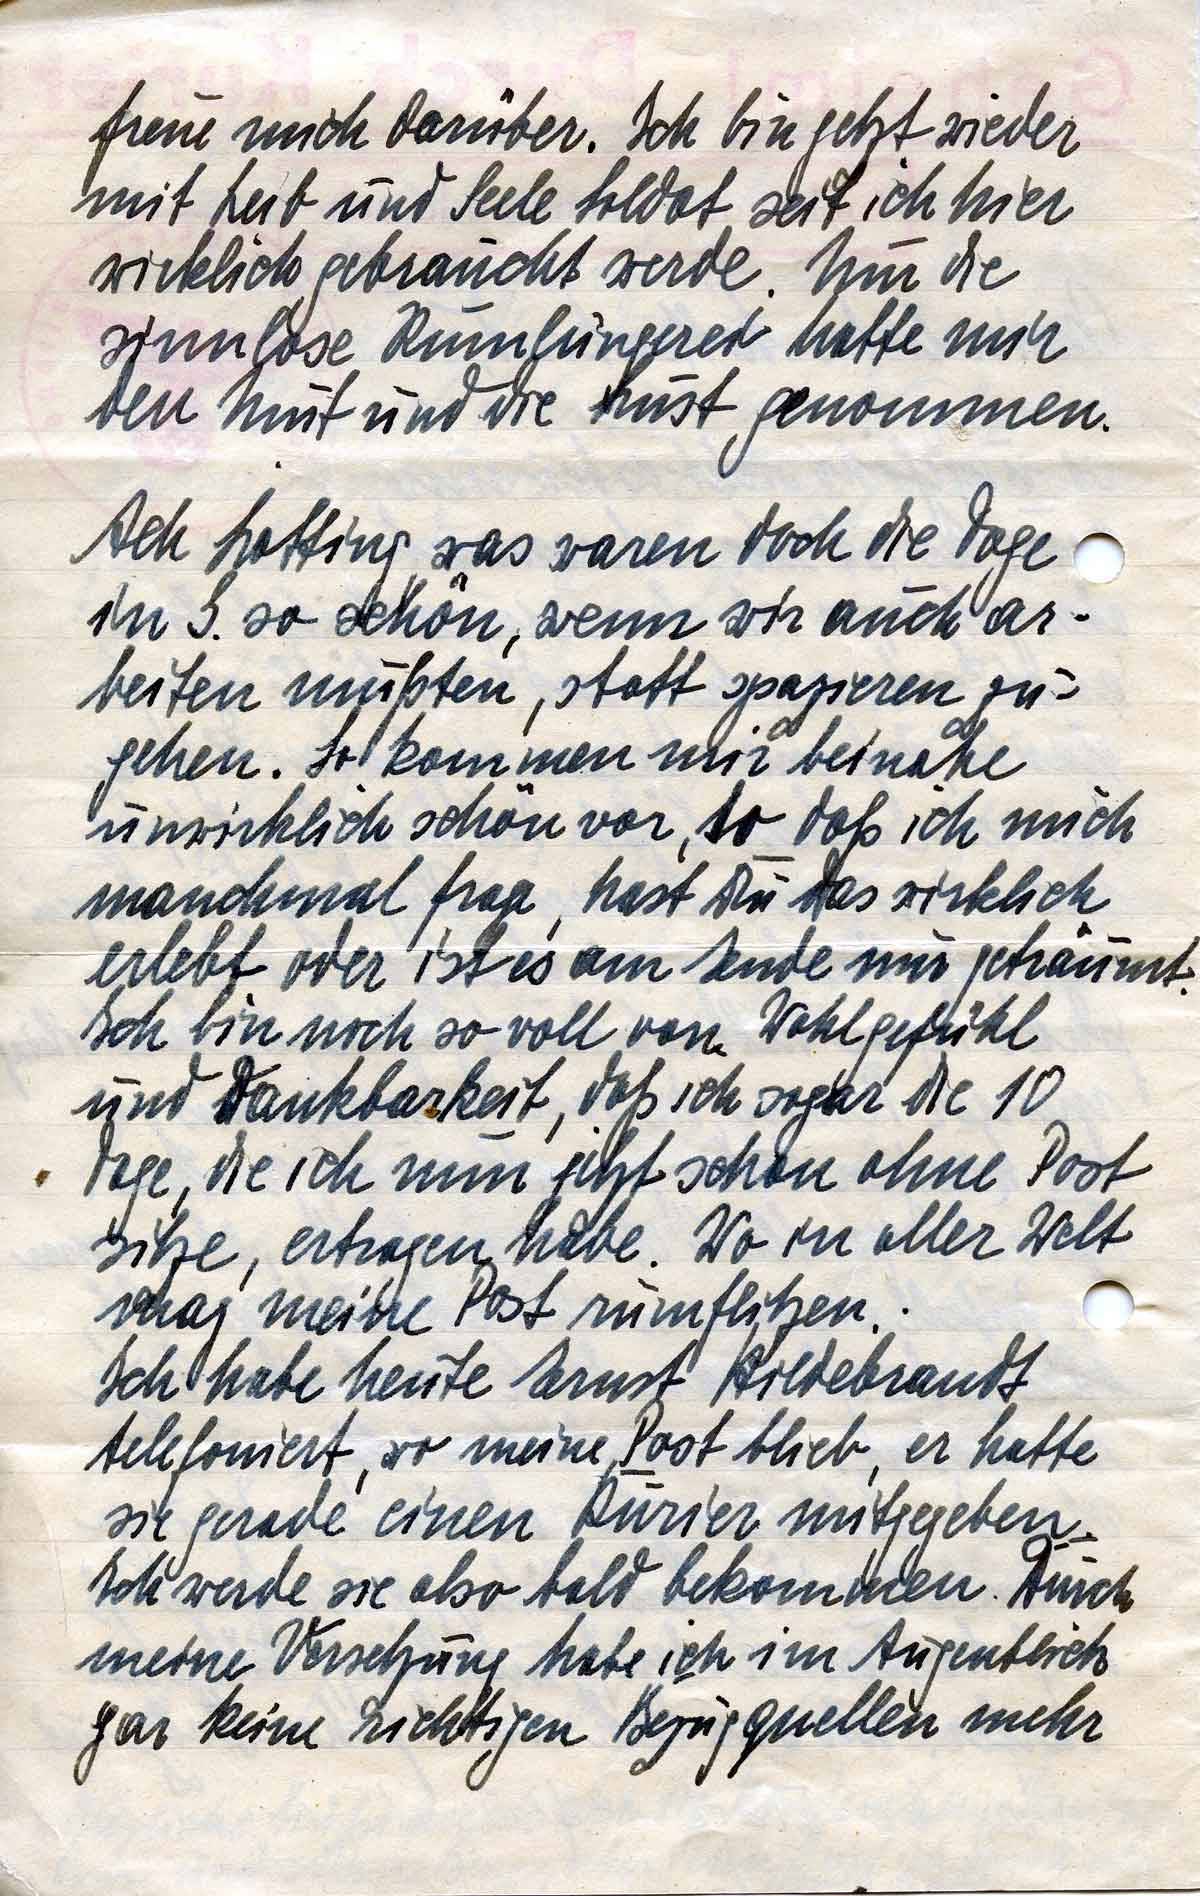 freue mich darüber. Ich bin jetzt wieder
mit Leib und Seele Soldat seit ich hier
wirklich gebraucht werde. Nur die
sinnlose Rumlungerei hatte mir
den Mut und die Lust genommen.
Ach was waren doch die Tage
in S. so schön, wenn wir auch ar-
beiten mußten, statt spazieren zu-
gehen. So kommen mir beinahe
unwirklich schön vor, so daß ich mich
manchmal frage, hast Du das wirklich
erlebt oder ist es am Ende nur geträumt.
Ich bin noch so voll von Wohlgefühl
und Dankbarkeit, daß ich sogar die 10
Tage, die ich nun jetzt schon ohne Post
sitze, ertragen habe. Wo in aller Welt
mag meine Post rumflitzen.
Ich habe heute Ernst Hildebrandt
telefoniert, wo meine Post blieb, er hatte
sie gerade einen Kurier mitgegeben.
Ich werde sie also bald bekommen. Durch
meine Versetzung habe ich im Augenblick
gar keine richtigen Bezugquellen mehr